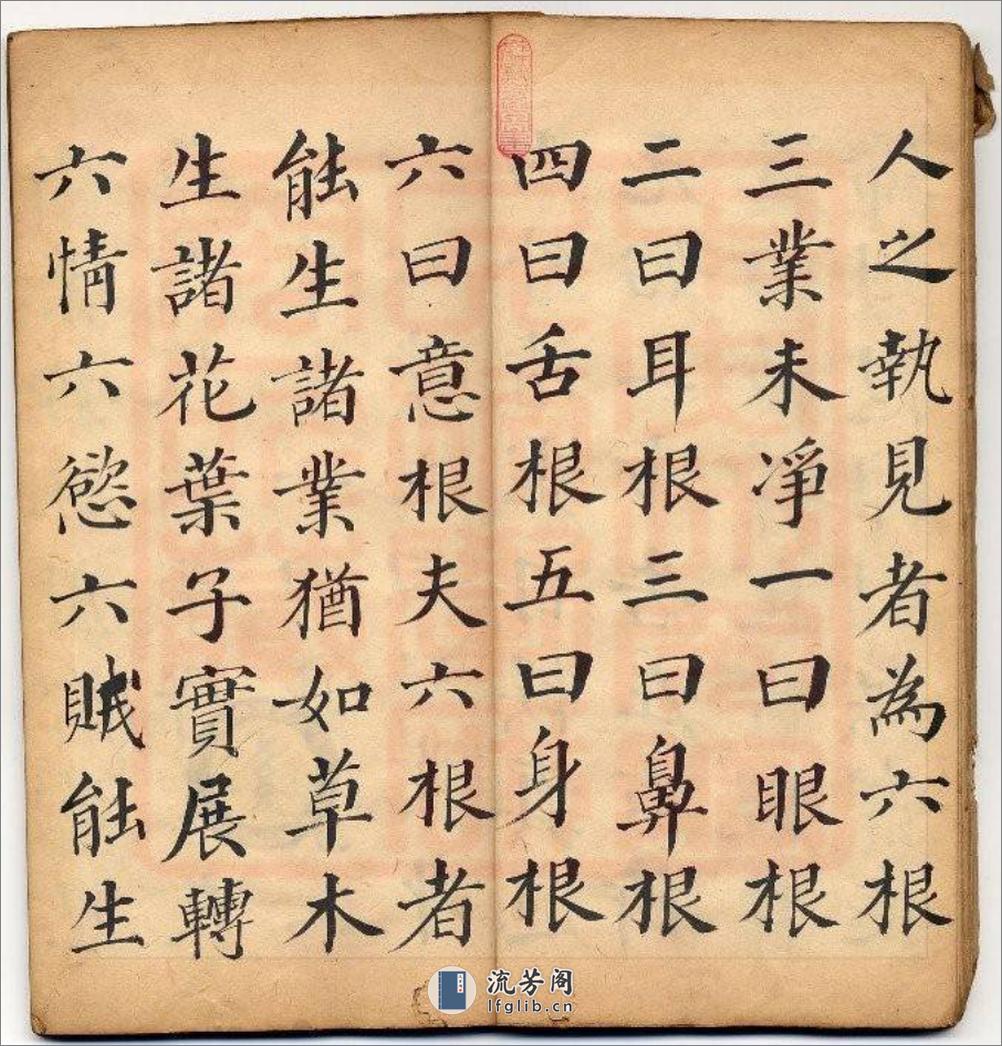 人之執見者為六根
三業未淨一曰眼根
二曰耳根三曰鼻根
四曰舌根五曰身根
六曰意根夫六根者
能生諸業猶如草木
生諸花葉子實展轉
六情六慾六賊能生
流芳阁
lfglib.cn